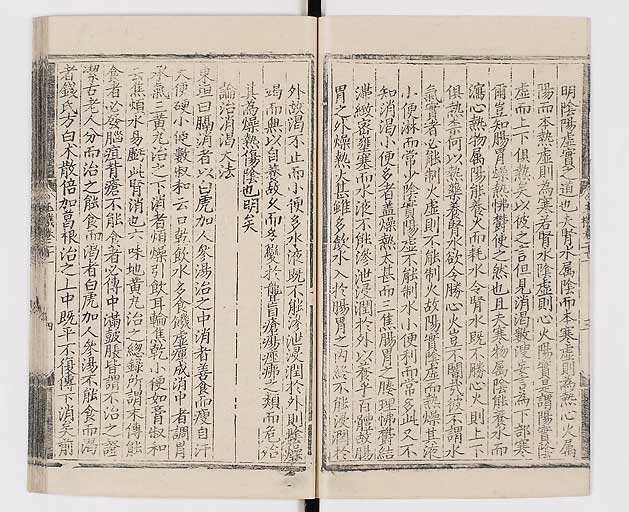 明陰陽虛實之道也夫腎水屬陰而本寒虛則為熱心火屬
陽而本熱虛則為寒若腎水陰虛則心火陽實是謂陽實陰
虛而上下俱熱矣以彼之言但見消渴數溲妄言為下部寒
爾豈知腸胃燥熱怫鬱使之然也且夫寒物屬陰能養水而
瀉心熱物屬陽能養火而耗水今腎水既不勝心火則上下
俱熱奈何以熱藥養腎水欲令勝心火豈不闇哉彼不謂水
氣實者必能制火虛則不能制火故陽實陰虛而熱燥其液
小便淋而常少陰實陽虛不能制水小便利而常多此又不
知消渴小便多者蓋燥熱太甚而三焦腸胃之腠理怫鬱結
滯緻密壅塞而水液不能滲泄浸潤於外以養乎百體故腸
胃之外燥熱太甚雖多飲水入於腸胃之內終不能浸潤於
外故渴不止而小便多水液既不能滲泄浸潤於外則陰燥
竭而無以自養故久而多變於聾盲瘡瘍痤痱之類而危殆
其為燥熱傷陰也明矣
論治消渴大法
東垣曰膈消者以白虎加人參湯治之中消者善食而瘦自汗
大便硬小便數叔和云口乾飲水多食饑虛癉成消中者調胃
承氣三黃丸治之下消者煩燥引飲耳輪焦乾小便如膏叔和
云焦煩水易虧此腎消也六味地黃丸治之總錄所謂末傳能
食者必發腦疽背瘡不能食者必傳中滿鼓脹皆謂不治之證
潔古老人分而治之能食而渴者白虎加人參湯不能食而渴
者錢氏方白朮散倍加葛根治之上中既平不復傳下消矣前